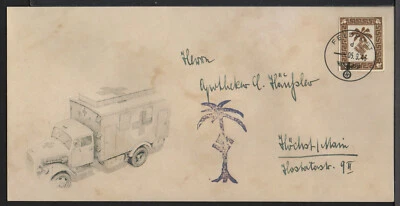 Herrn
Apotheker A. Häußler
Höchst/Main
Hostatostr. 9 II